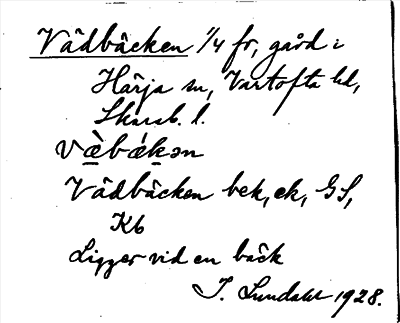 Vädbäcken 1/4 fr, gård i
Härja sn, Vartofta hd,
Skarab. l.
væ̀bákən
Vädbäcken bek, ek, GS,
Kb
Ligger vid en bäck
I. Lundahl 1928.